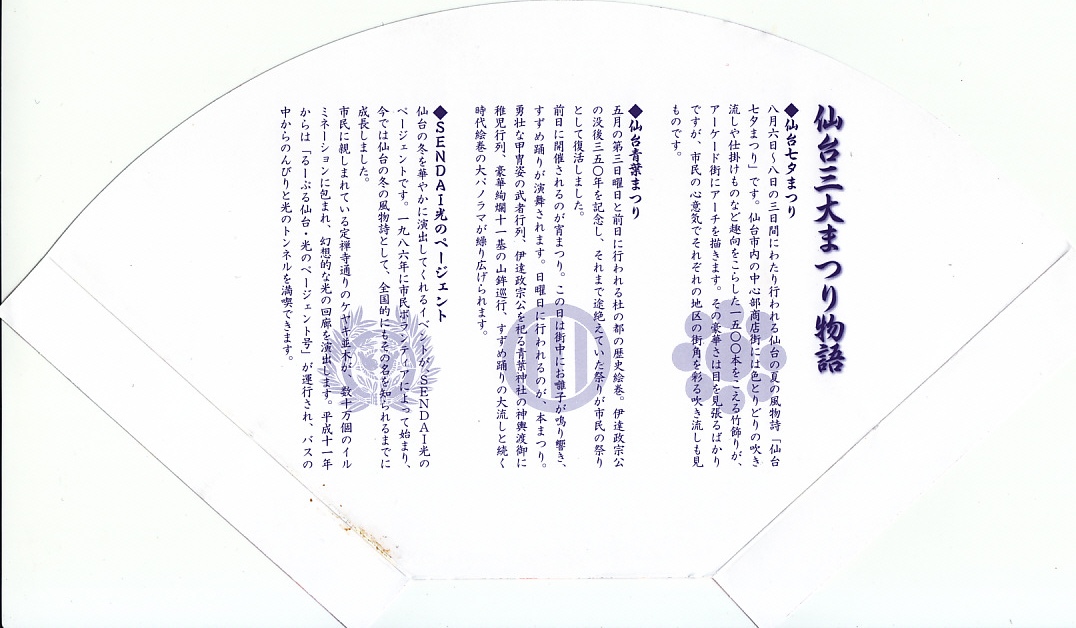 仙台三大まつり物語
◆仙台七夕まつり
八月六日～八日の三日間にわたり行われる仙台の夏の風物詩「仙台
七夕まつり」です。仙台市内の中心部商店街には色とりどりの吹き
流しや仕掛けものなど趣向をこらした一五〇〇本をこえる竹飾りが、
アーケード街にアーチを描きます。その豪華さは目を見張るばかり
ですが、市民の心意気でそれぞれの地区の街角を彩る吹き流しも見
ものです。
◆仙台青葉まつり
五月の第三日曜日と前日に行われる杜の都の歴史絵巻。伊達政宗公
の没後三五〇年を記念し、それまで途絶えていた祭りが市民の祭り
として復活しました。
前日に開催されるのが宵まつり。この日は街中にお囃子が鳴り響き、
すずめ踊りが演舞されます。日曜日に行われるのが、本まつり。
勇壮な甲冑姿の武者行列、伊達政宗公を祀る青葉神社の神輿渡御に
稚児行列、豪華絢爛十一基の山鉾巡行、すずめ踊りの大流しと続く
時代絵巻の大パノラマが繰り広げられます。
◆SENDAI光のページェント
仙台の冬を華やかに演出してくれるイベントが、SENDAI光の
ページェントです。一九八六年に市民ボランティアによって始まり、
今では仙台の冬の風物詩として、全国的にもその名を知られるまでに
成長しました。
市民に親しまれている定禅寺通りのケヤキ並木が、数十万個のイル
ミネーションに包まれ、幻想的な光の回廊を演出します。平成十一年
からは「るーぷる仙台・光のページェント号」が運行され、バスの
中からのんびりと光のトンネルを満喫できます。